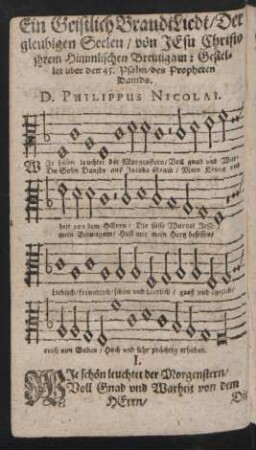 Ein Geistlich BrandtLiedt/Der
gleubigen Seelen/ von JEsu Christo
jhrem Himmlischen Breutigam: Gestel-
let vber den 45. Psalm/ des Propheten
Davids.
D. PHILIPPUS NICOLAI.
WIe schön leuchtet der Morgenstern/ Voll gnad vnd War-
Du Sohn Davids aus Jacobs Stam/ Mein König vnd
heit von dem HErrn/ Die süsse Wurtzel Jesse:
mein Breutigam/ Hast mir mein Hertz besessen/
Lieblich/ freundlich/ schön vnd herrlich/ groß vnd ehrlich/
reich von Gaben/ Hoch vnd sehr prächtig erhaben.
I.
WIe schön leuchtet der Morgenstern/
Voll Gnad vnd Warheit von dem
HErrn/
Die